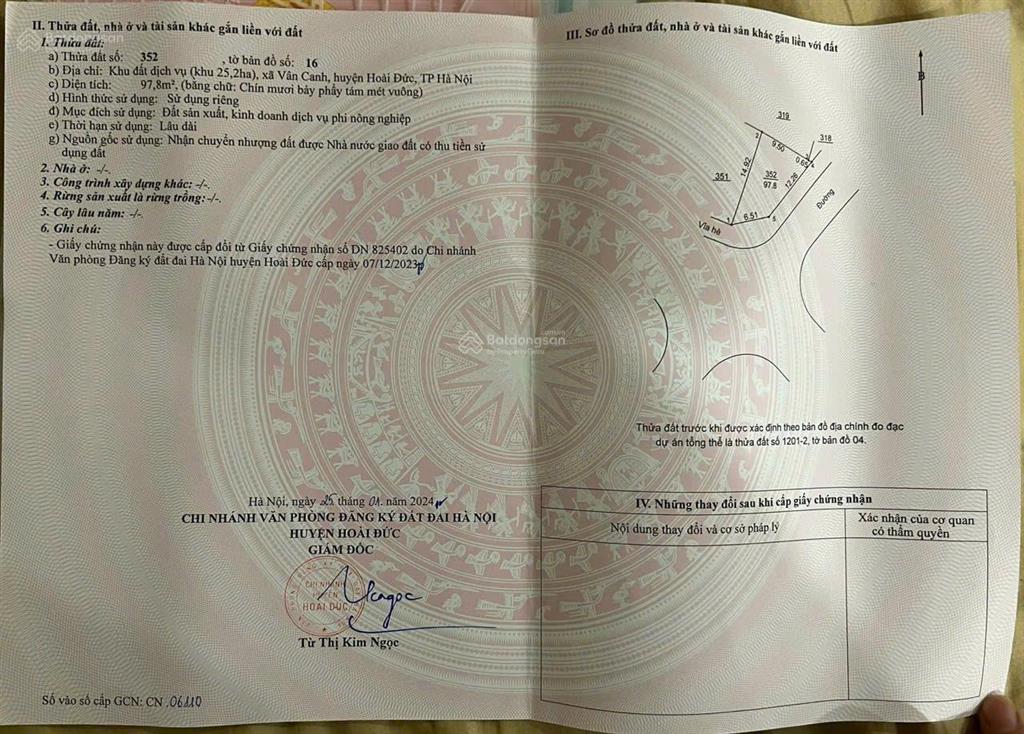 II. Thửa đất, nhà ở và tài sản khác gắn liền với đất
1. Thửa đất:
a) Thửa đất số: 352 , tờ bản đồ số: 16
b) Địa chỉ: Khu đất dịch vụ (khu 25,2ha), xã Vân Canh, huyện Hoài Đức, TP Hà Nội
c) Diện tích: 97,8m², (bằng chữ: Chín mươi bảy phẩy tám mét vuông)
d) Hình thức sử dụng: Sử dụng riêng
đ) Mục đích sử dụng: Đất sản xuất, kinh doanh dịch vụ phi nông nghiệp
e) Thời hạn sử dụng: Lâu dài
g) Nguồn gốc sử dụng: Nhận chuyển nhượng đất được Nhà nước giao đất có thu tiền sử
dụng đất
2. Nhà ở: -/-.
3. Công trình xây dựng khác: -/-.
4. Rừng sản xuất là rừng trồng: -/-.
5. Cây lâu năm: -/-.
6. Ghi chú:
- Giấy chứng nhận này được cấp đổi từ Giấy chứng nhận số DN 825402 do Chi nhánh
Văn phòng Đăng ký đất đai Hà Nội huyện Hoài Đức cấp ngày 07/12/2023
Hà Nội, ngày 25 tháng 01 năm 2024
CHI NHÁNH VĂN PHÒNG ĐĂNG KÝ ĐẤT ĐAI HÀ NỘI
HUYỆN HOÀI ĐỨC
GIÁM ĐỐC
CHI NHÁNH
HUYỆN
HOÀI ĐỨC
Từ Thị Kim Ngọc
Số vào sổ cấp GCN: CN 06110
III. Sơ đồ thửa đất, nhà ở và tài sản khác gắn liền với đất
B
319
318
2
9.50
3
0.65
4
351
14.92
352
97.8
12.26
Đường
1
6.51
5
Vỉa hè
Batdongsan
by PropertyGuru
Thửa đất trước khi được xác định theo bản đồ địa chính đo đạc
dự án tổng thể là thửa đất số 1201-2, tờ bản đồ 04.
IV. Những thay đổi sau khi cấp giấy chứng nhận
Nội dung thay đổi và cơ sở pháp lý
Xác nhận của cơ quan
có thẩm quyền